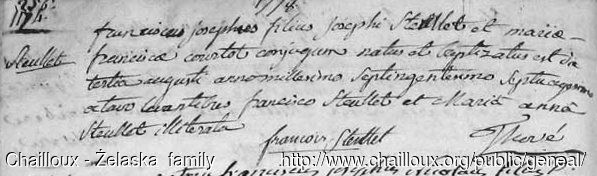 1778.
franciscus josephus filius josephi Steullet et mariæ
Steullet
franciscæ courtot conjugum natus et baptizatus est die
tertia augusti anno millesimo septingentesimo septuagesimo
octavo levantibus francisco Steullet et Mariâ annâ
Steullet illiterata
francois Steullet
Chailloux - Želaska family
http://www.chailloux.org/public/geneal/